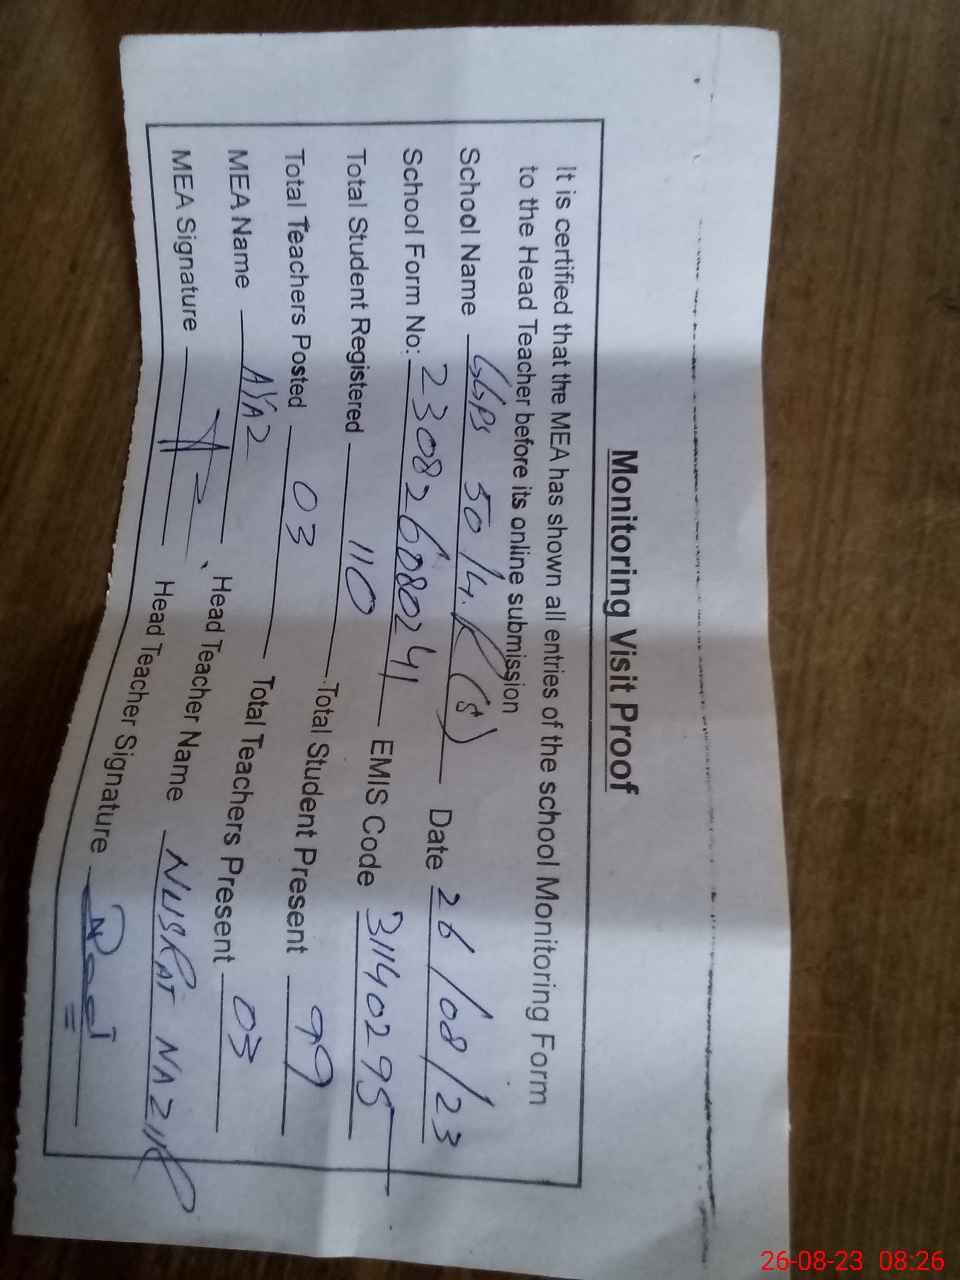 Monitoring Visit Proof
It is certified that the MEA has shown all entries of the school Monitoring Form
to the Head Teacher before its online submission
School Name GGPS 50/4.R (s) Date 26/08/23
School Form No: 23082608024 EMIS Code 31140295
Total Student Registered 110 Total Student Present 99
Total Teachers Posted 03 Total Teachers Present 03
MEA Name AYAZ Head Teacher Name NUSRAT NAZIR
MEA Signature Head Teacher Signature
26-08-23 08:26